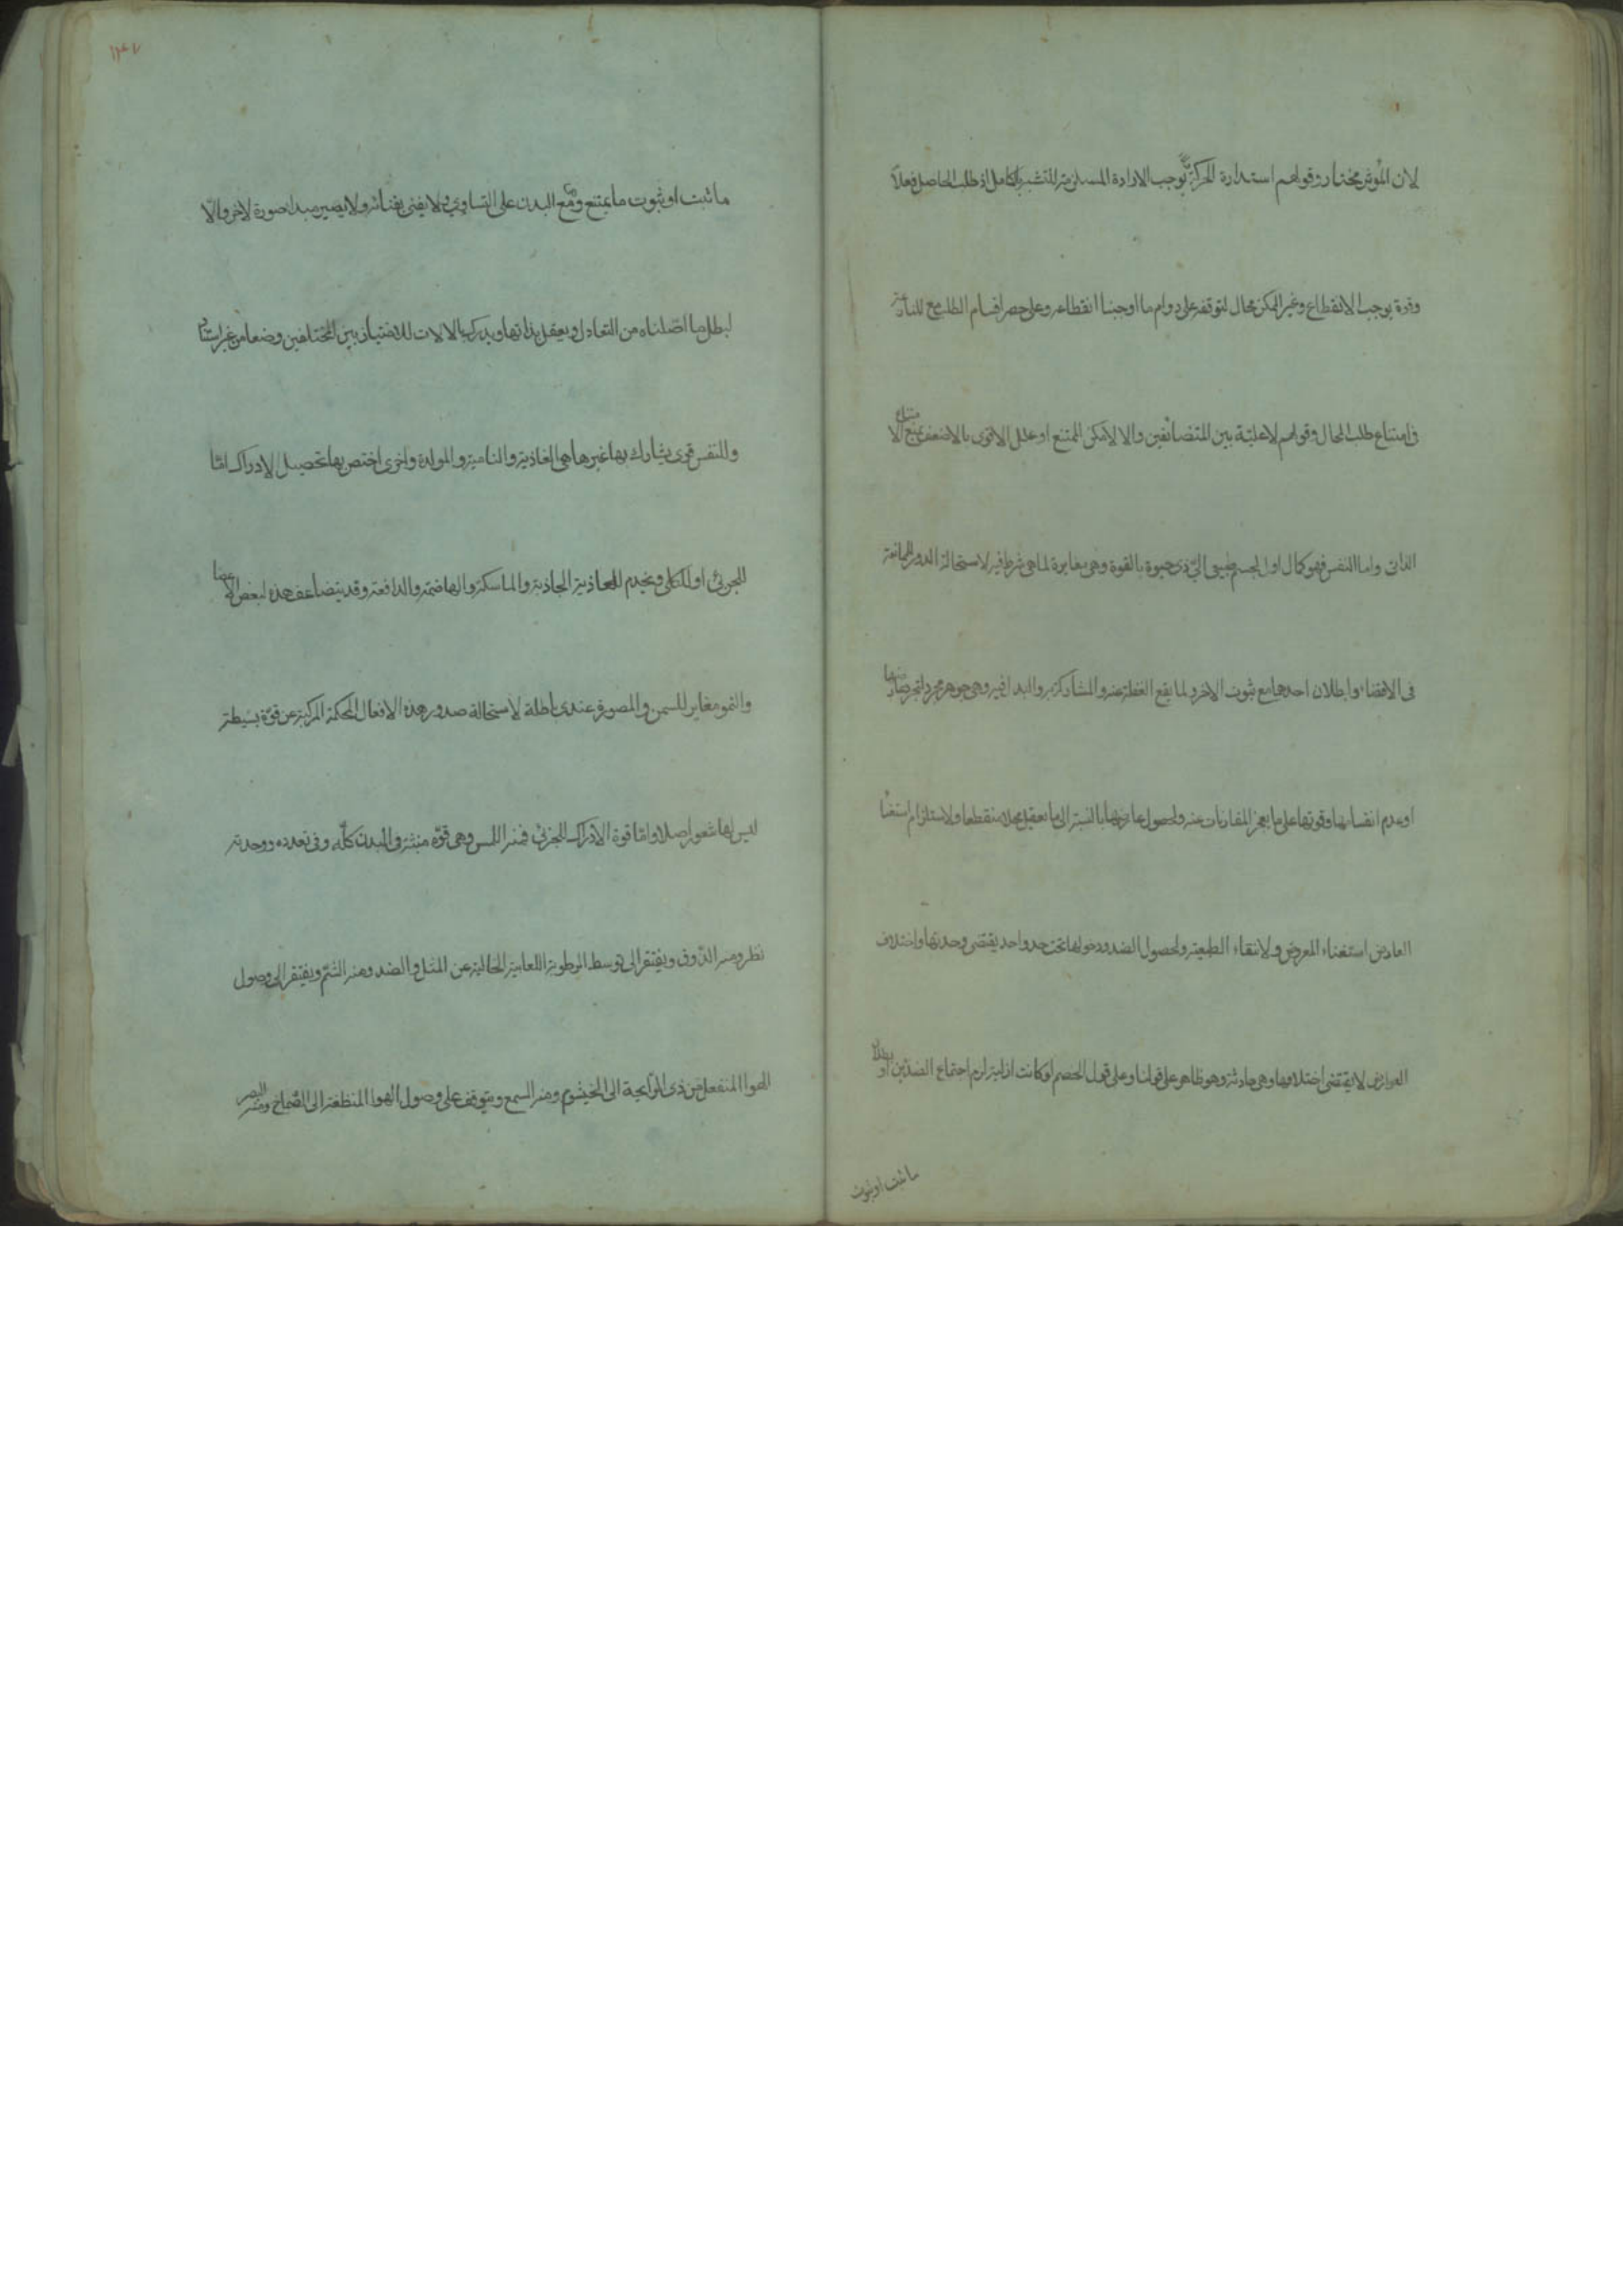 لان المؤثر مختار وقولهم استدارة الحركة توجب الارادة المستلزمة للتشبه بالكامل اذ طلب الحاصل فعلاً
وقوة يوجب الانقطاع وغير الممكن محال لتوقفه على دوام ما اوجبنا انقطاعه وعلى حصر اقسام الطلب مع المنازعة
في امتناع طلب المحال وقولهم لا علية بين المتضائفين والا لامكن الممتنع او علل الاقوى بالاضعف لمنع الامتناع
الذاتي واما النفس فهو كمال اول لجسم طبيعي الي ذي حيوة بالقوة وهي مغايرة لما هي شرط فيه لاستحالة الدور وللممانعة
في الاقتضاء وابطلان احدهما مع ثبوت الاخر ولما يقع الغفلة عنه والمشاركة به والتبدل فيه وهي جوهر مجرد لتجرد عارضها
او عدم انقسامها وقوتها على ما يعجز المقارنات عنه ولحصول عارضها بالنسبة الى ما يعقل محلا منقطعا ولاستلزام استغنا
العارض استغناء المعروض ولانتفاء التبعية ولحصول الضد ودخولها تحت حد واحد يقتضي وحدتها واختلاف
العوارض لا يقتضي اختلافها وهي حادثة وهو ظاهر على قولنا وعلى قول الخصم لو كانت ازلية لزم اجتماع الضدين او بطلان
ما ثبت او ثبوت
١٤٧
ما ثبت او ثبوت ما يمتنع وهي مع البدن على التساوي ولا يفنى بفنائه ولا يصير مبدا صورة لاخر والا
لبطل ما اصلناه من التعادل ويعقل بذاتها ويدرك بالالات للامتياز بين المختلفين وضعا من غير استناد
وللنفس قوى يشارك بها غيرها هي الغاذية والنامية والمولدة واخرى اختص بها تحصيل الادراك اما
للجزئي او للكلي ويخدم للغاذية الجاذبة والماسكة والهاضمة والدافعة وقد يتضاعف هذه لبعض الاعضا
والنمو مغاير للسمن والمصورة عندي باطلة لاستحالة صدور هذه الافعال المحكمة المركبة عن قوة بسيطة
ليس لها شعور اصلا واما قوة الادراك الجزئي فمنه اللمس وهي قوة منبثة في البدن كله وفي تعدده ووحدته
نظر ومنه الذوق ويفتقر الى توسط الرطوبة اللعابية الخالية عن المثل والضد ومنه الشم ويفتقر الى وصول
الهوا المنفعل من ذي الرايحة الى الخيشوم ومنه السمع ويتوقف على وصول الهوا المنضغط الى الصماخ ومنه البصر